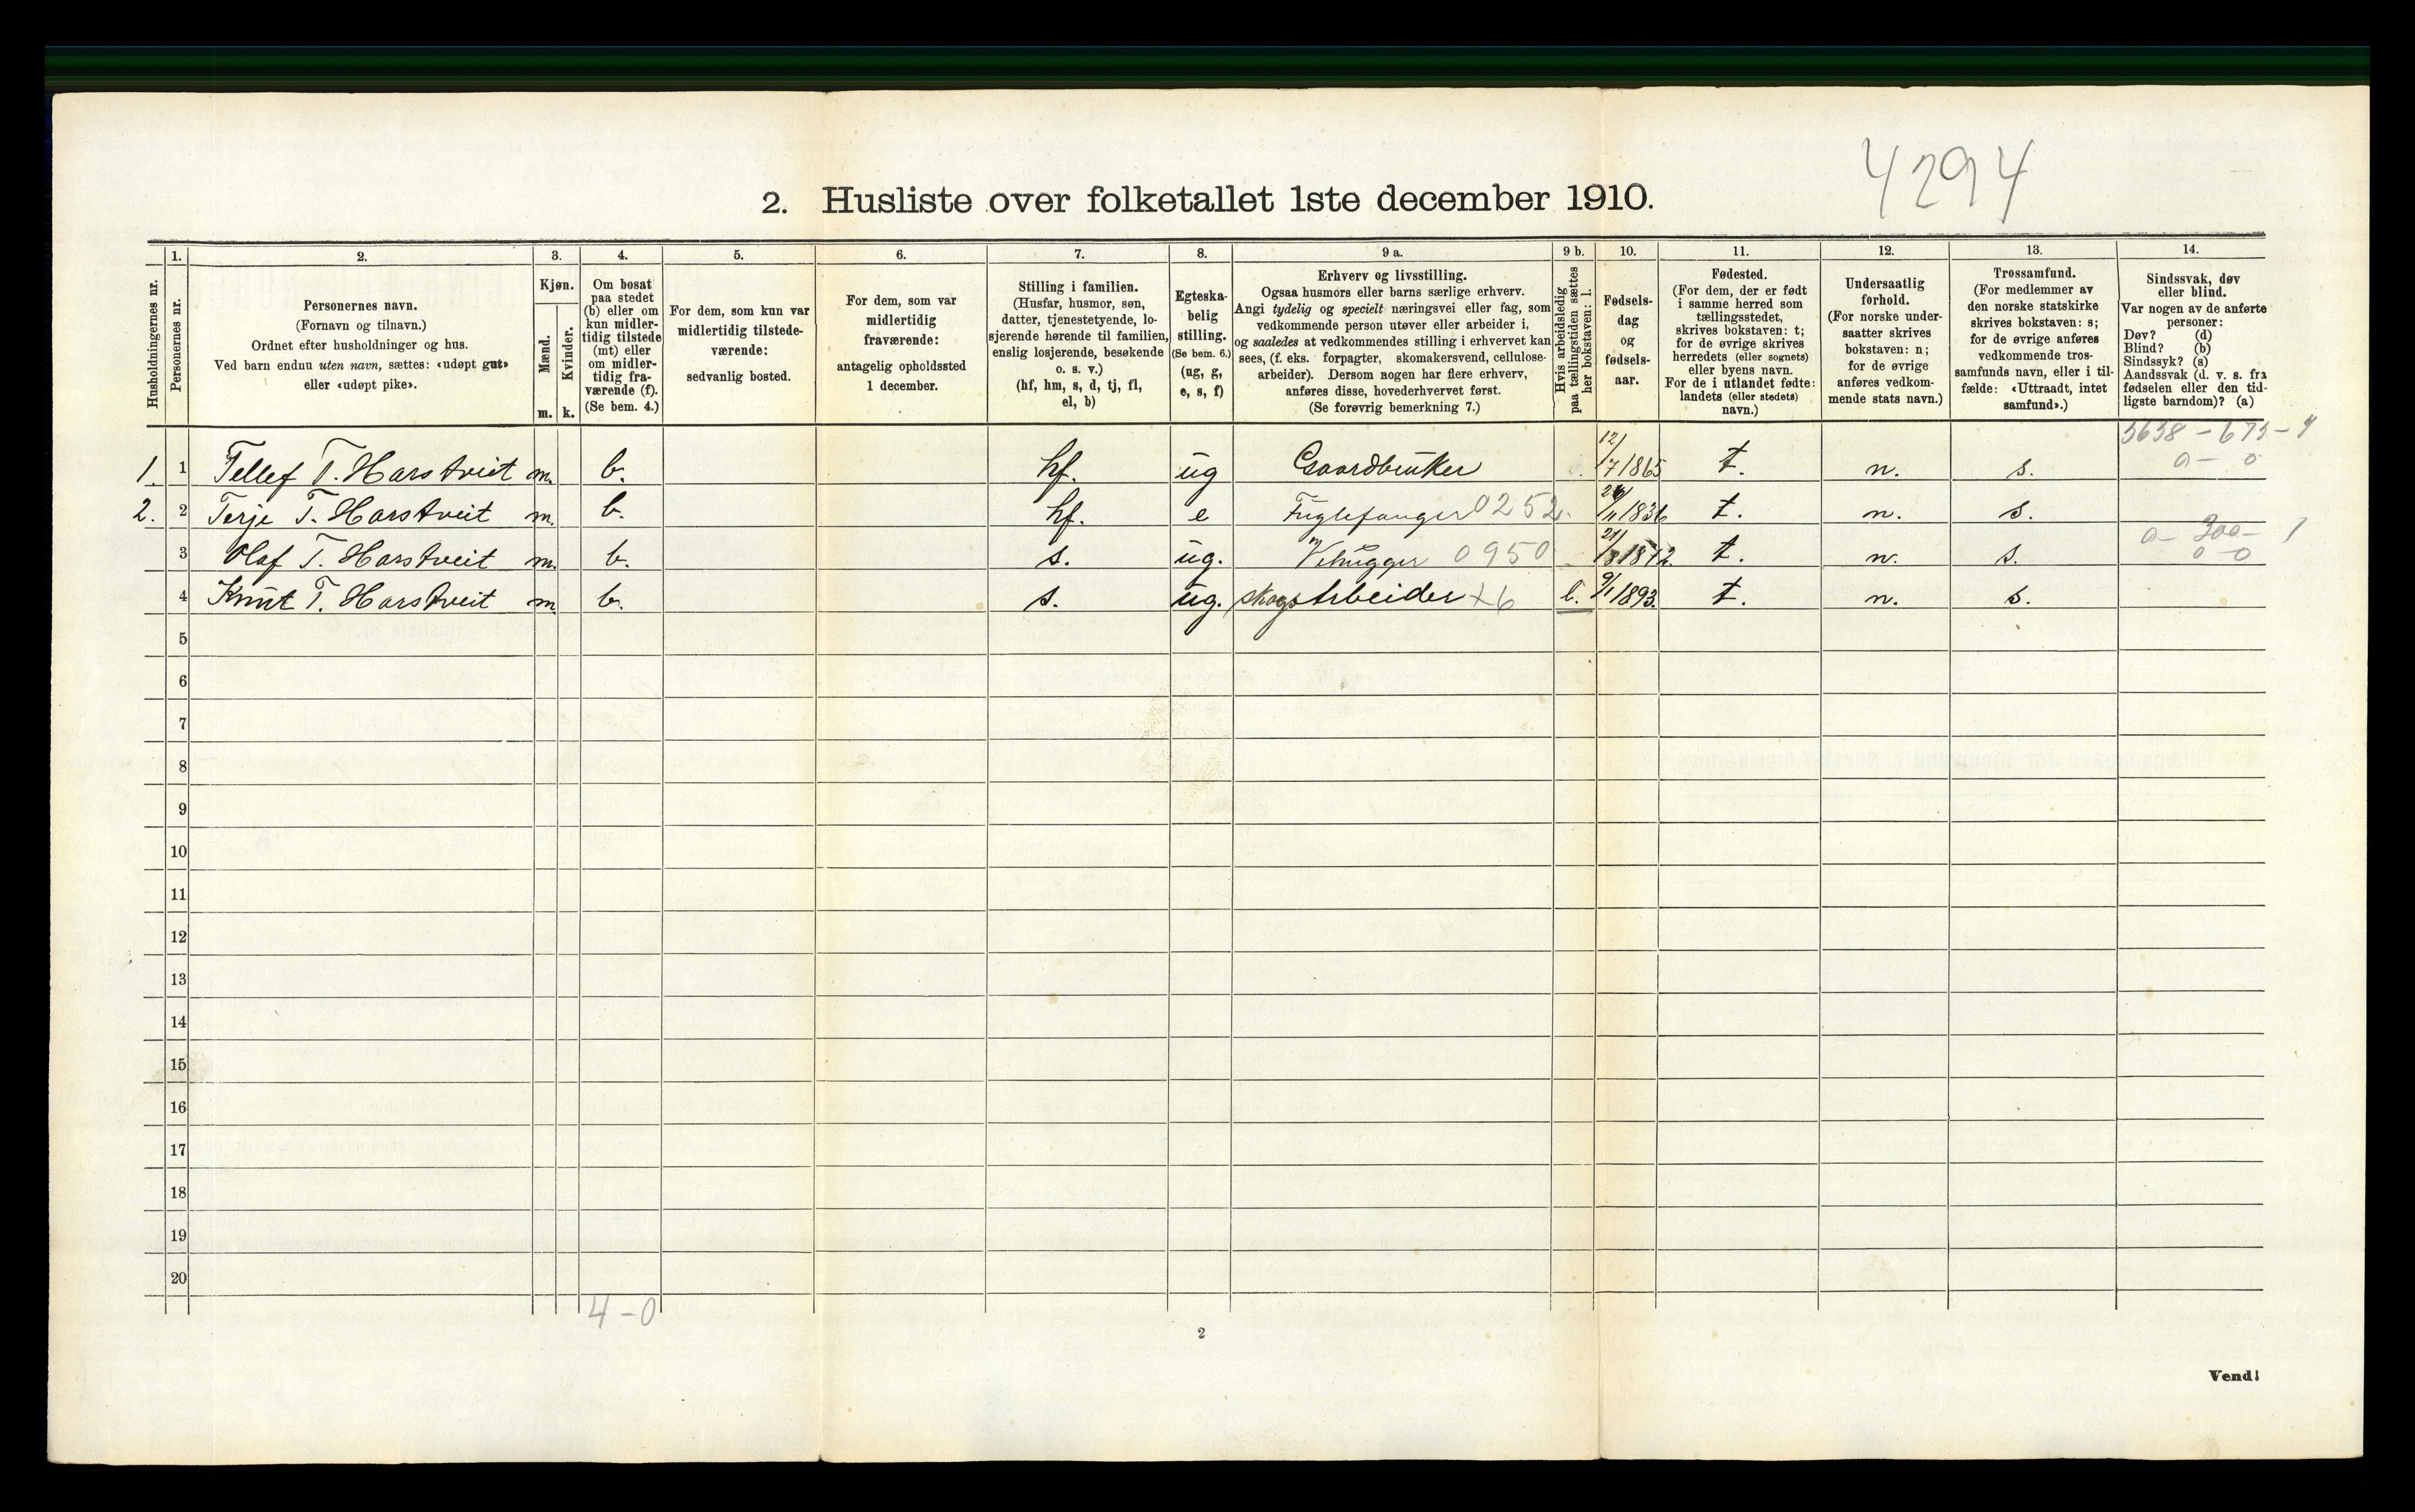 4294
2. Husliste over folketallet 1ste december 1910.
Husholdningernes nr.
1.
Personernes nr.
2.
Personernes navn.
(Fornavn og tilnavn.)
Ordnet efter husholdninger og hus.
Ved barn endnu uten navn, sættes: «udøpt gut»
eller «udøpt pike».
3.
Kjøn.
Mænd.
Kvinder.
m. k.
4.
Om bosat
paa stedet
(b) eller om
kun midler-
tidig tilstede
(mt) eller
om midler-
tidig fra-
værende (f).
(Se bem. 4.)
5.
For dem, som kun var
midlertidig tilstede-
værende:
sedvanlig bosted.
6.
For dem, som var
midlertidig
fraværende:
antagelig opholdssted
1 december.
7.
Stilling i familien.
(Husfar, husmor, søn,
datter, tjenestetyende, lo-
sjerende hørende til familien,
enslig losjerende, besøkende
o. s. v.)
(hf, hm, s, d, tj, fl,
el, b)
8.
Egteska-
belig
stilling.
(Se bem. 6.)
(ug, g,
e, s, f)
9 a.
Erhverv og livsstilling.
Ogsaa husmors eller barns særlige erhverv.
Angi tydelig og specielt næringsvei eller fag, som
vedkommende person utøver eller arbeider i,
og saaledes at vedkommendes stilling i erhvervet kan
sees, (f. eks. forpagter, skomakersvend, cellulose-
arbeider). Dersom nogen har flere erhverv,
anføres disse, hovederhvervet først.
(Se forøvrig bemerkning 7.)
9 b.
Hvis arbeidsledig
paa tællingstiden sættes
her bokstaven: l.
10.
Fødsels-
dag
og
fødsels-
aar.
11.
Fødested.
(For dem, der er født
i samme herred som
tællingsstedet,
skrives bokstaven: t;
for de øvrige skrives
herredets (eller sognets)
eller byens navn.
For de i utlandet fødte:
landets (eller stedets)
navn.)
12.
Undersaatlig
forhold.
(For norske under-
saatter skrives
bokstaven: n;
for de øvrige
anføres vedkom-
mende stats navn.)
13.
Trossamfund.
(For medlemmer av
den norske statskirke
skrives bokstaven: s;
for de øvrige anføres
vedkommende tros-
samfunds navn, eller i til-
fælde: «Uttraadt, intet
samfund».)
14.
Sindssvak, døv
eller blind.
Var nogen av de anførte
personer:
Døv? (d)
Blind? (b)
Sindssyk? (s)
Aandssvak (d. v. s. fra
fødselen eller den tid-
ligste barndom)? (a)
5638 - 675 - 4
0 - 0
1. 1 Tellef T. Harstveit m. b. hf. ug Gaardbruker 12/7 1865 t. n. s.
2. 2 Terje T. Harstveit m. b. hf. e Fuglefanger 0252 /11 1836 t. n. s.
0 - 300 - 1
0 - 0
3 Olaf T. Harstveit m. b. s. ug. Vedhugger 0950 21/ t. n. s.
4 Knut T. Harstveit m. b. s. ug. skogsarbeider x6 l. 9/1 1893. t. n. s.
5
6
7
8
9
10
11
12
13
14
15
16
17
18
19
20
4 - 0
2
Vend!